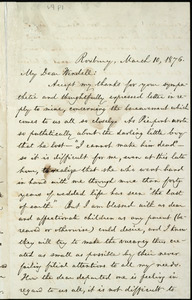 Roxbury, March 10, 1876.
My Dear Wendell:
Accept my thanks for your sympa-
thetic and thoughtfully expressed letter in re-
ply to mine, concerning the bereavement which
comes to us all so closely. As Pierpont wrote
so pathetically about the darling little boy
that he lost—"I cannot make him dead"—
so it is difficult for me, even at this late
hour, to realize that she who went hand
in hand with me through more than forty
years of wedded life has seen "the last
of earth." But I am blessed with as dear
and affectionate children as any parent (be-
reaved or otherwise) could desire, and I know
they will try to make the vacancy thus cre-
ated as small as possible by their never-
failing filial attentions to all my needs.
How the dear departed one is feeling in
regard to us all, it is not difficult to